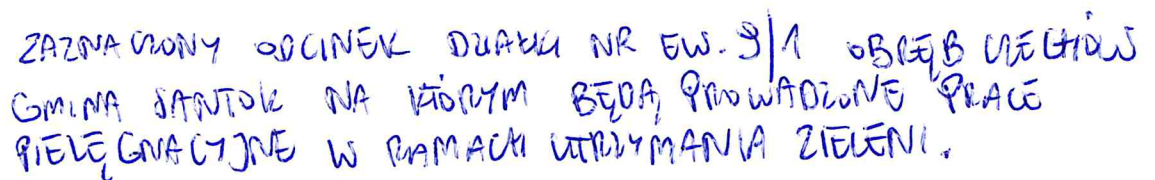 ZAZNACZONY ODCINEK DZIAŁKI NR EW. 9/1 OBRĘB CZECHÓW
GMINA SANTOK NA KTÓRYM BĘDĄ PROWADZONE PRACE
PIELĘGNACYJNE W RAMACH UTRZYMANIA ZIELENI.